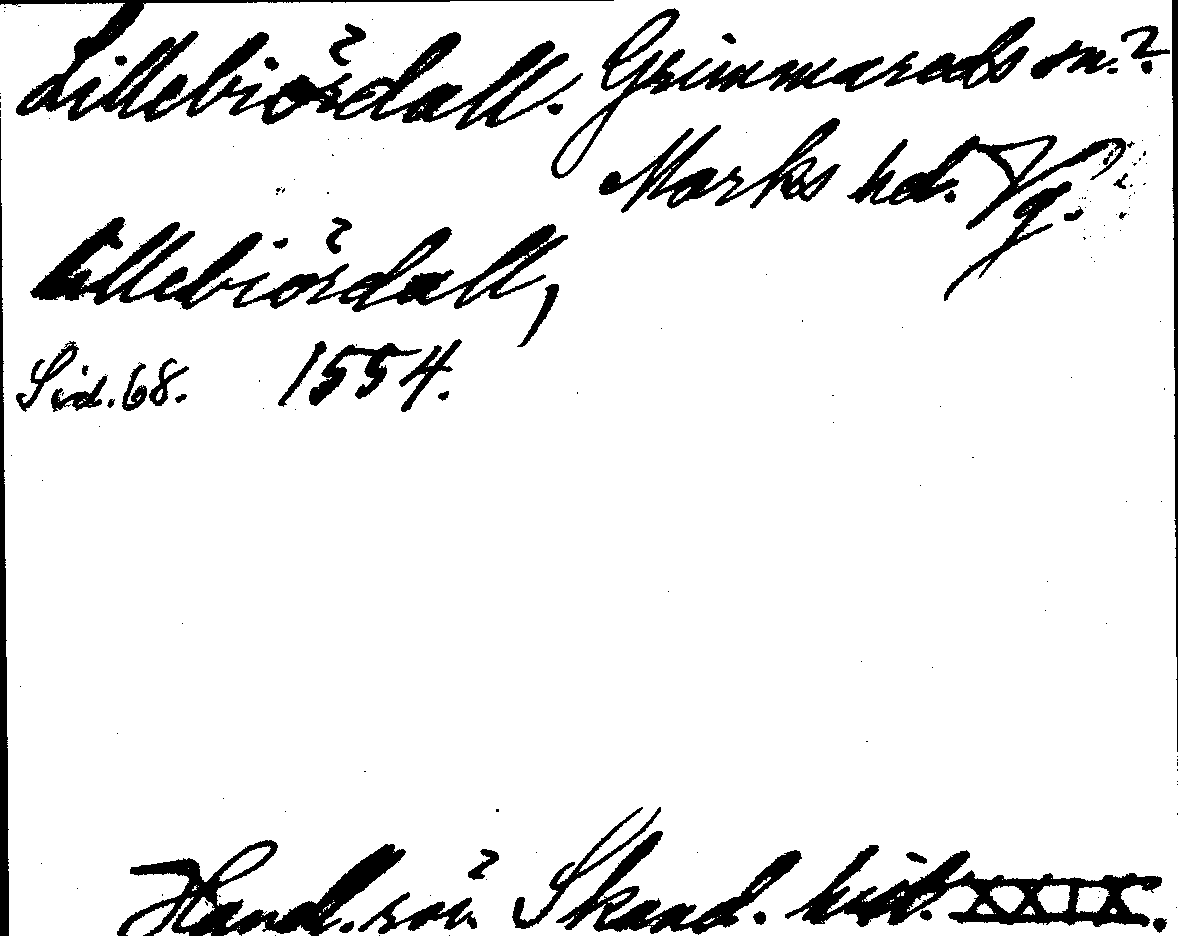 Lillebiördall. Grimmareds sn.?
Marks hd. Vg.?
Lillebiördall,
Sid. 68. 1554.
Handl. rör. Skand. hist. XXIX.